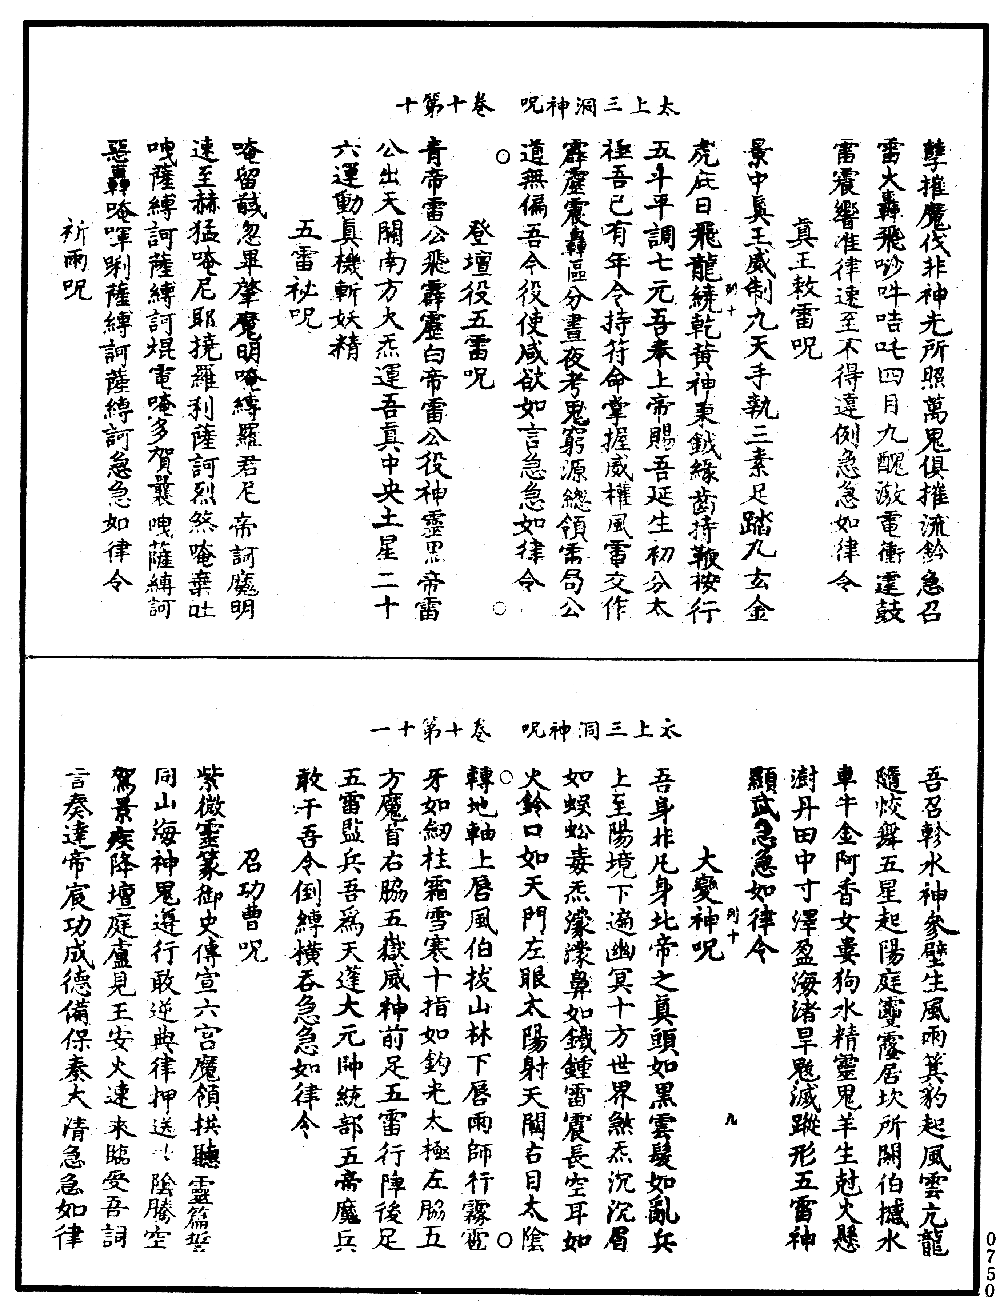 太上三洞神呪　卷十第十
孽摧魔伐非神光所照萬鬼俱摧流鈴急召
雷火轟飛吵吽咭吒四目九醜激電衝霆鼓
雷震響准律速至不得違例急急如律令
真王敕雷呪
景中真王威制九天手執三素足踏九玄金
列十
虎庇日飛龍繞乾黃神秉鉞緣齒持鞭按行
五斗平調七元吾奉上帝賜吾延生初分太
極吾已有年令持符命掌握威權風雷交作
霹靂震轟區分晝夜考鬼窮源總領雷局公
道無偏吾令役使咸欲如言急急如律令
登壇役五雷呪
青帝雷公飛霹靂白帝雷公役神靈黑帝雷
公出天關南方火炁運吾真中央土星二十
六運動真機斬妖精
五雷祕呪
唵留誐忽畢肇魔明唵縛羅君尼帝訶魔明
速至赫猛唵尼耶撓羅利薩訶烈煞唵棄吐
㗚薩縛訶薩縛訶焜電唵多賀曩㗚薩縛訶
惡轟唵㖇唎薩縛訶薩縛訶急急如律令
祈雨呪
太上三洞神呪　卷十第十一
吾召軫水神參壁生風雨箕豹起風雲亢龍
隨恔舞五星起陽庭靈霳居坎所關伯撼水
車牛金阿香女婁狗水精靈鬼羊生尅火懸
澍丹田中寸澤盈海渚旱魃滅蹤形五雷神
顯武急急如律令
列十
九
大變神呪
吾身非凡身北帝之真頭如黑雲髮如亂兵
上至陽境下遍幽冥十方世界煞炁沉沉眉
如蜈蚣毒炁濛濛鼻如鐵鍾雷震長空耳如
火鈴口如天門左眼太陽射天關右目太陰
轉地軸上唇風伯拔山林下唇雨師行霧雹
牙如劒柱霜雪寒十指如鈎光太極左脇五
方魔首右脇五嶽威神前足五雷行陣後足
五雷監兵吾為天蓬大元帥統部五帝魔兵
敢干吾令倒縛橫吞急急如律令
召功曹呪
紫微靈篆御史傳宣六宮魔領拱聽靈篇誓
同山海神鬼遵行敢逆典律押送　陰騰空
駕景疾降壇庭盧見王安火速來臨受吾詞
言奏達帝宸功成德備保奏大清急急如律
0750